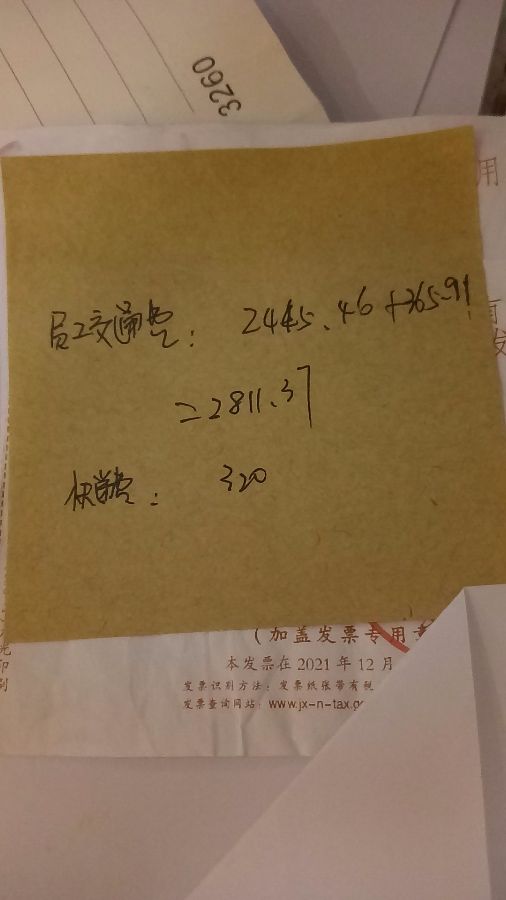 3260
用
员工交通费: 2445.46+365.91
=2811.37
快递费: 320
(加盖发票专用章
本发票在2021年12月
发票识别方法:发票纸张带有
发票查询网站:www.jx-n-tax.g